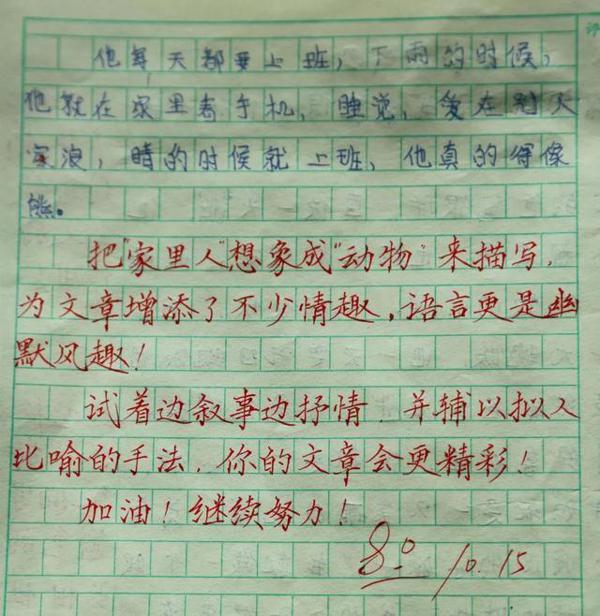 他每天都要上班，下雨的时候，
他就在家里看手机，睡觉，爱在别人
浪，晴的时候就上班，他真的得像
熊。
把"家里人"想象成"动物"来描写，
为文章增添了不少情趣，语言更是幽
默风趣！
试着边叙事边抒情，并辅以拟人
比喻的手法，你的文章会更精彩！
加油！继续努力！
80 10.15